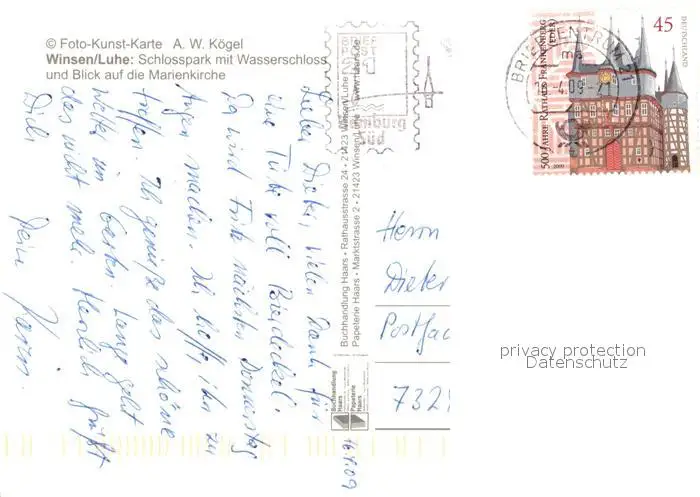 © Foto-Kunst-Karte A. W. Kögel
Winsen/Luhe: Schlosspark mit Wasserschloss
und Blick auf die Marienkirche
Lieber Dieter, vielen Dank für
eine Tüte voll Bierdeckel.
Da wird Fritz nächsten Donnerstag
Augen machen. Ich hoffe, ihn zu
treffen. Ich genieße das schöne
Wetter im Garten. Lange geht
das nicht mehr. Herzlich grüßt
Dich
Deine Karin
16.9.09
Buchhandlung Haars • Rathausstrasse 24 • 21423 Winsen/Luhe
Papeterie Haars • Marktstrasse 2 • 21423 Winsen/Luhe www.haars.de
Buchhandlung
Haars
Papeterie
Haars
BRIEFZENTRUM
500 JAHRE RATHAUS FRANKENBERG
(EDER)
2009
45
DEUTSCHLAND
Herrn
Dieter
Postfac
732
privacy protection
Datenschutz